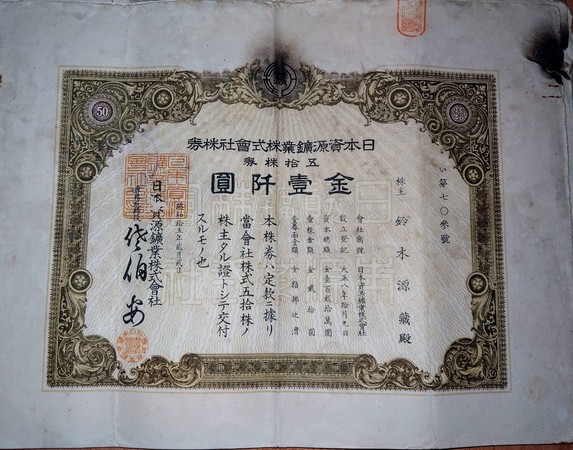 日本資源鑛業株式會社株券
五拾株券
金壹阡圓
い第七〇參號
株主 鈴木源藏殿
會社商號 日本資源鑛業株式會社
設立登記 大正八年拾月九日
資本總額 金壹百貳拾萬圓
壹株金額 金貳拾圓
壹券面金額 全額拂込濟
本株券ハ定款ニ據り
當會社株式五拾株ノ
株主タル證トシテ交付
スルモノ也
昭和拾五年貳月貳日
日本資源鑛業株式會社
50